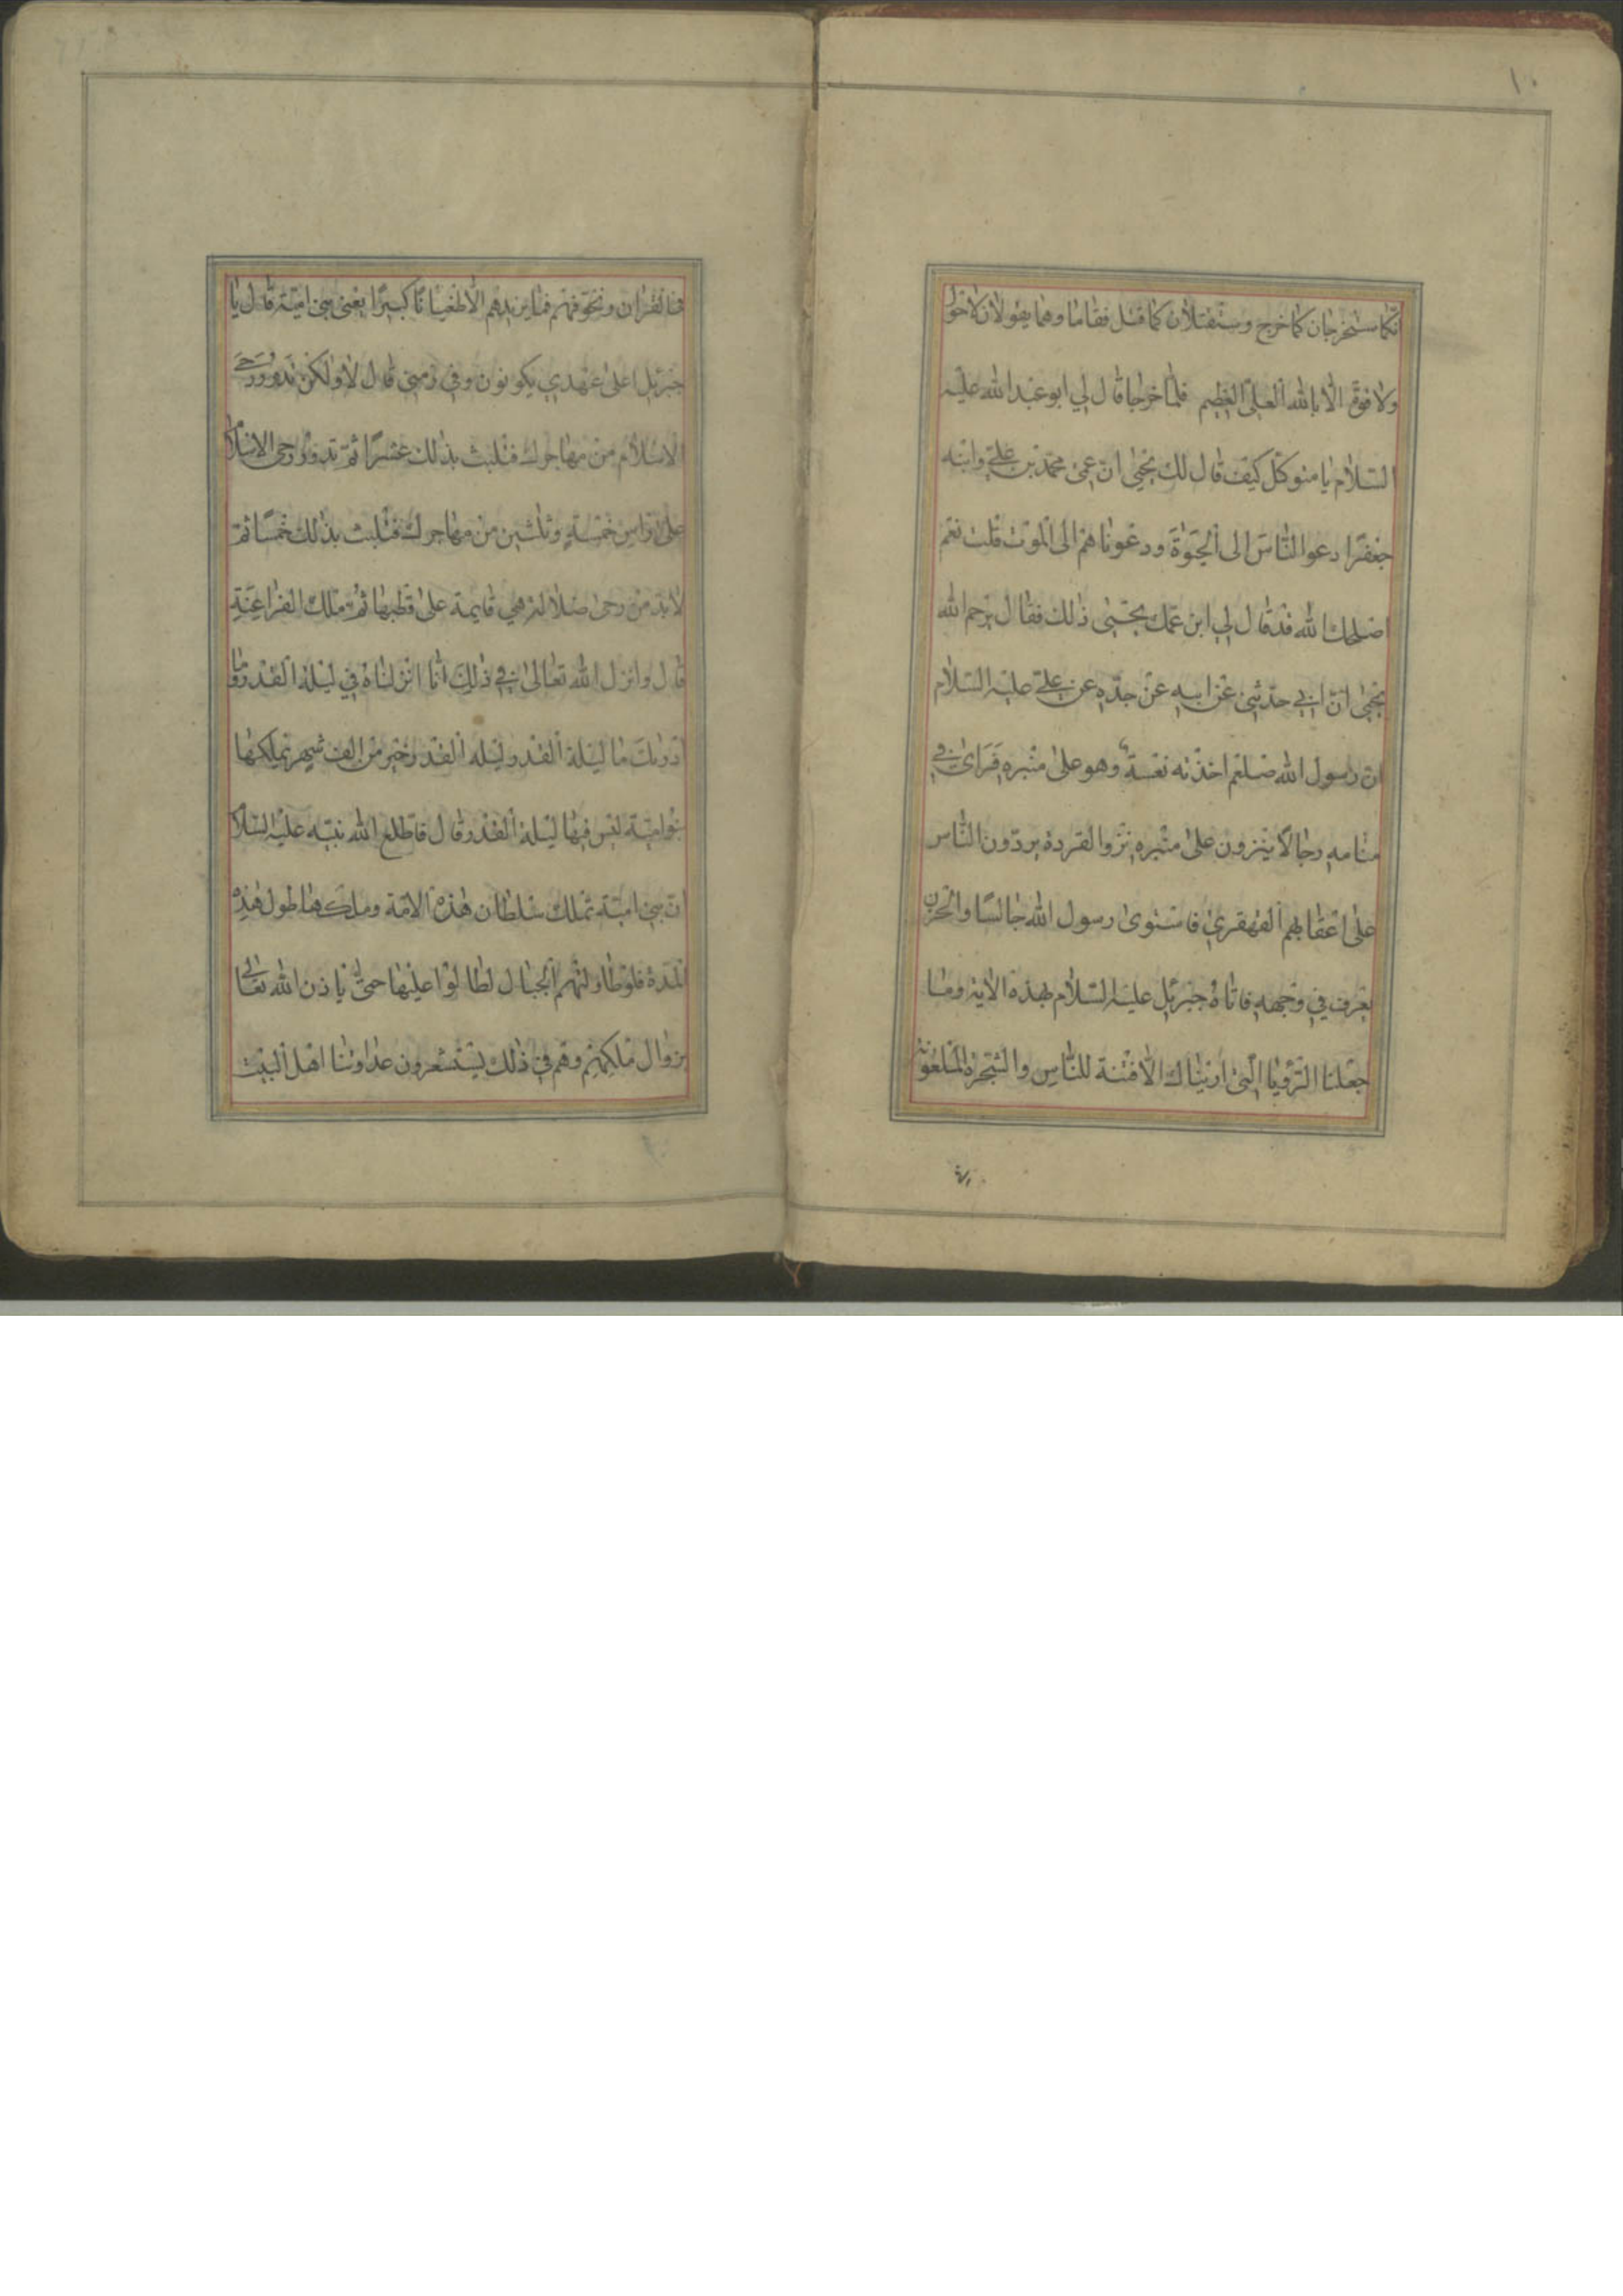 ١٠
انّكما ستخرجان كما خرج وستقتلان كما قتل فقاما وهما يقولان لاحول
ولا قوة الّا بالله العلىّ العظيم فلمّا خرجا قال لي ابو عبد الله عليه
السّلام يا متوكّل كيف قال لك يحيى انّ عمى محمّد بن علىّ وابنه
جعفرًا دعوا النّاس الى الحيوة ودعوناهم الى الموت قلت نعم
اصلحك الله قد قال لي ابن عمّك يحيى ذلك فقال يرحم الله
يحيى انّ ابي حدّثني عن ابيه عن جدّه عن علىّ عليه السّلام
ان رسول الله صلعم اخذته نعسة وهو على منبره فراى في
منامه رجالًا ينزون على منبره نزو القردة يردّون النّاس
على اعقابهم القهقرى فاستوى رسول الله جالسًا والحزن
يعرف في وجهه فاتاه جبرئيل عليه السّلام بهذه الاية وما
جعلنا الرّؤيا الّتى اريناك الّا فتنة للنّاس والشّجرة الملعونة
في القران ونخوّفهم فما يزيدهم الّا طغيانًا كبيرًا يعنى بنى اميّة قال يا
جبرئيل اعلى عهدي يكونون وفي زمنى قال لا ولكن تدور رحى
الاسلام من مهاجرك فتلبث بذلك عشرًا ثمّ تدور رحى الاسلام
على راس خمسة وثلثين من مهاجرك فتلبث بذلك خمسًا ثمّ
لا بدّ من رحى ضلالة هي قايمة على قطبها ثمّ ملك الفراعنة
قال وانزل الله تعالى في ذلك انّا انزلناه في ليلة القدر وما
ادريك ما ليلة القدر ليلة القدر خير من الف شهر تملكها
بنو اميّة ليس فيها ليلة القدر قال فاطلع الله نبيّه عليه السّلام
ان بنى اميّة تملك سلطان هذه الامّة وملكها طول هذه
المدّة فلو طاولتهم الجبال لطالوا عليها حتّى ياذن الله تعالى
بزوال ملكهم وهم في ذلك يستشعرون عداوتنا اهل البيت